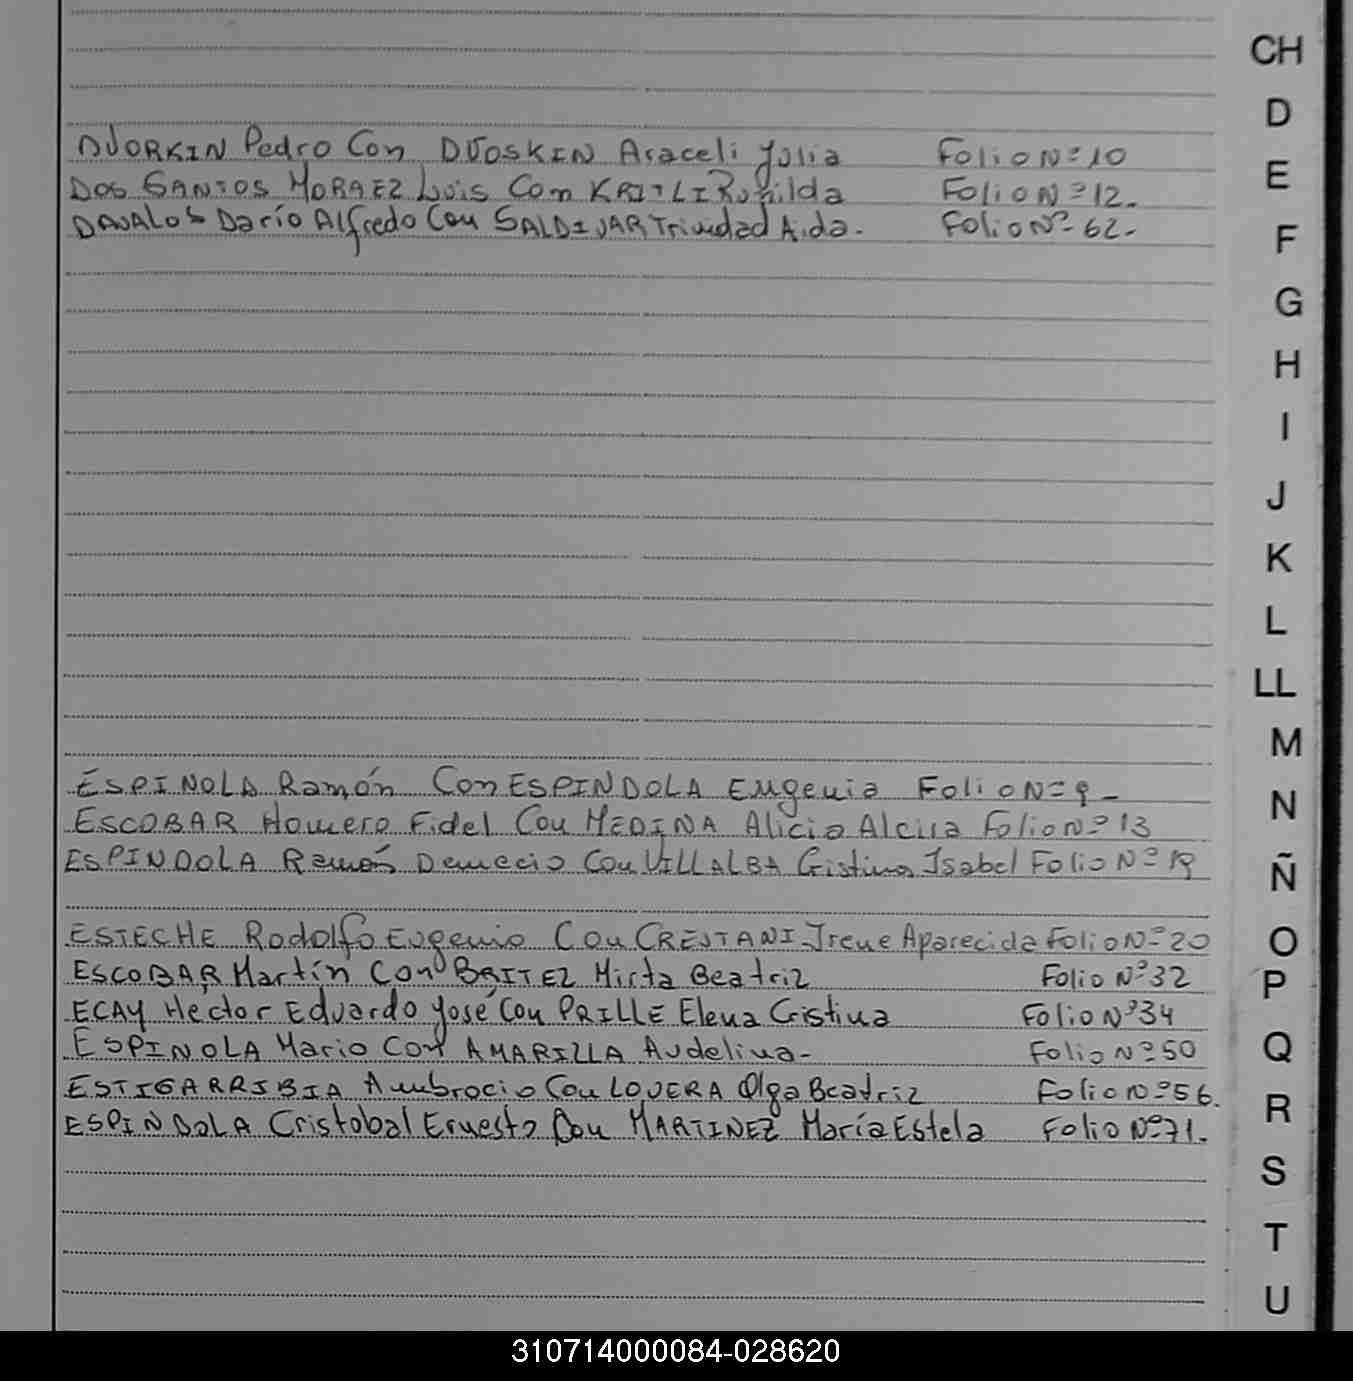 DVORKIN Pedro Con DVOSKIN Araceli Julia Folio Nº 10
DOS SANTOS MORAEZ Luis Con Romilda Folio Nº 12.
DAVALOS Darío Alfredo Con SALDIVAR Trinidad Aida. Folio Nº 62.
ESPINOLA Ramón Con ESPINDOLA Eugenia Folio Nº 9-
ESCOBAR Homero Fidel Con MEDINA Alicia Alcira Folio Nº 13
ESPINDOLA Ramón Demecio Con VILLALBA Cristina Isabel Folio Nº 19
ESTECHE Rodolfo Eugenio Con CRESTANI Irene Aparecida Folio Nº 20
ESCOBAR Martín Con BRITEZ Mirta Beatriz Folio Nº 32
ECAY Héctor Eduardo José Con PRILLE Elena Cristina Folio Nº 34
ESPINOLA Mario Con AMARILLA Audelina- Folio Nº 50
ESTIGARRIBIA Ambrocio Con LOVERA Olga Beatriz Folio Nº 56.
ESPINDOLA Cristobal Ernesto Con MARTINEZ María Estela Folio Nº 71.
CH
D
E
F
G
H
I
J
K
L
LL
M
N
Ñ
O
P
Q
R
S
T
U
310714000084-028620